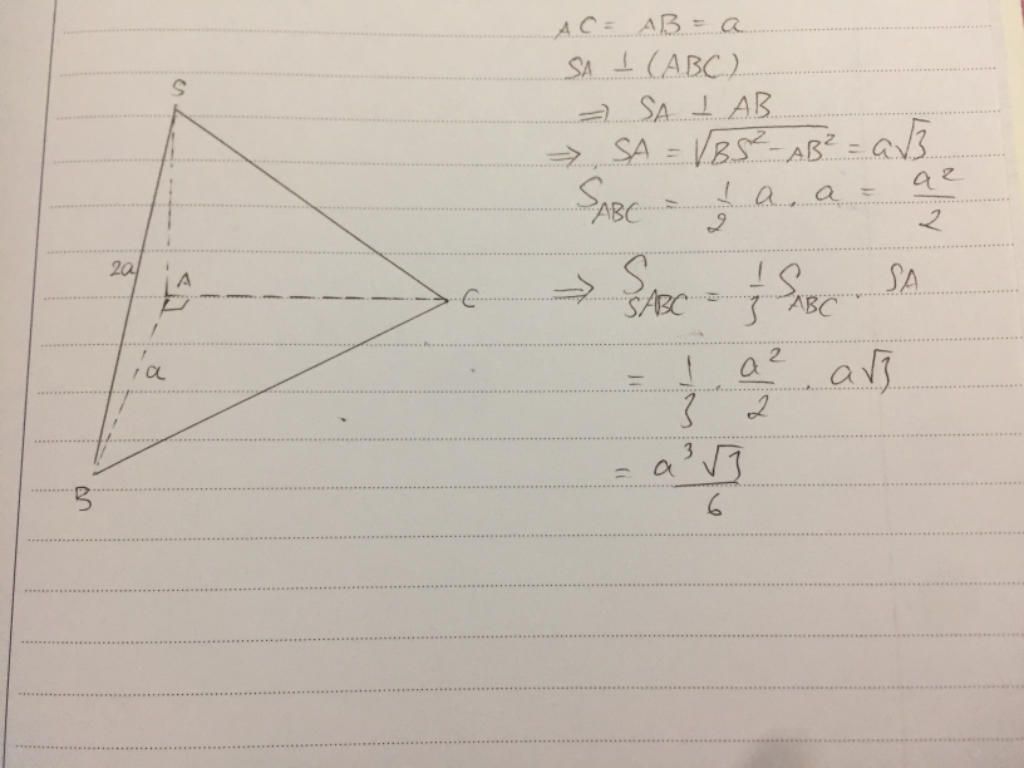 S
2a
A
C
a
B
AC = AB = a
SA ⊥ (ABC)
⇒ SA ⊥ AB
⇒ SA = √(BS² - AB²) = a√3
S_ABC = 1/2 a . a = a²/2
⇒ S_SABC = 1/3 S_ABC . SA
= 1/3 . a²/2 . a√3
= a³√3/6